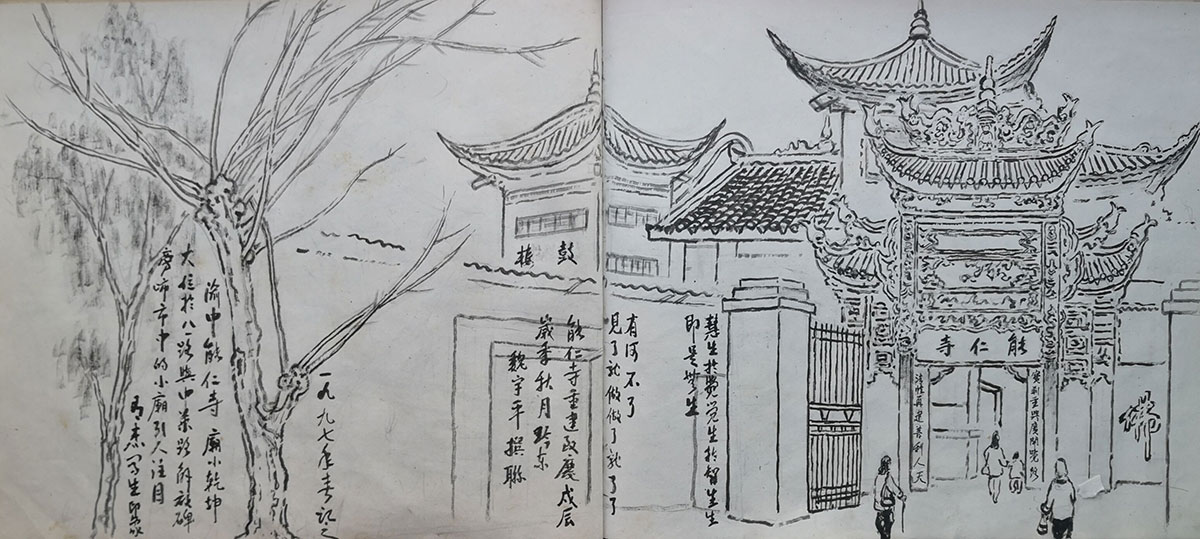 能仁寺
重興廣開覺路
再建普利人天
佛
慧生於覺覺生於智生生
即是無生
有何不了
見了就做做了就了了
鼓樓
能仁寺重建 慶戊辰
歲季秋月黔東
魏宇平撰聯
一九九七年春記之
渝中能仁寺 廟小乾坤
大位於八一路與中華路解放碑
旁鬧市中的小廟引人注目
寫生